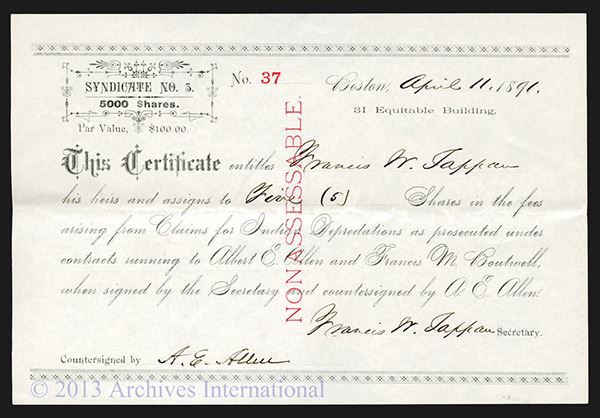 SYNDICATE NO. 3.
5000 Shares.
Par Value, $100.00.
No. 37
Boston, April 11. 1891.
31 Equitable Building.
This Certificate entitles Francis W. Tappan
his heirs and assigns to Five (5) Shares in the fees
arising from Claims for Indian Depredations as prosecuted under
contracts running to Albert E. Allen and Francis M. Boutwell,
when signed by the Secretary and countersigned by A. E. Allen.
NON ASSESSABLE.
Francis W. Tappan Secretary.
Countersigned by A. E. Allen
© 2013 Archives International